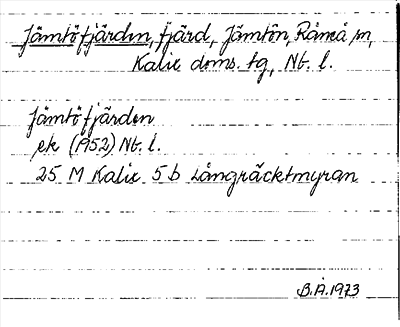 Jämtöfjärden, fjärd, Jämtön, Råneå sn,
Kalix doms. tg, Nb. l.
Jämtöfjärden
ek (1952) Nb. l.
25 M Kalix 5 b Långräcktmyran
B.Å. 1973